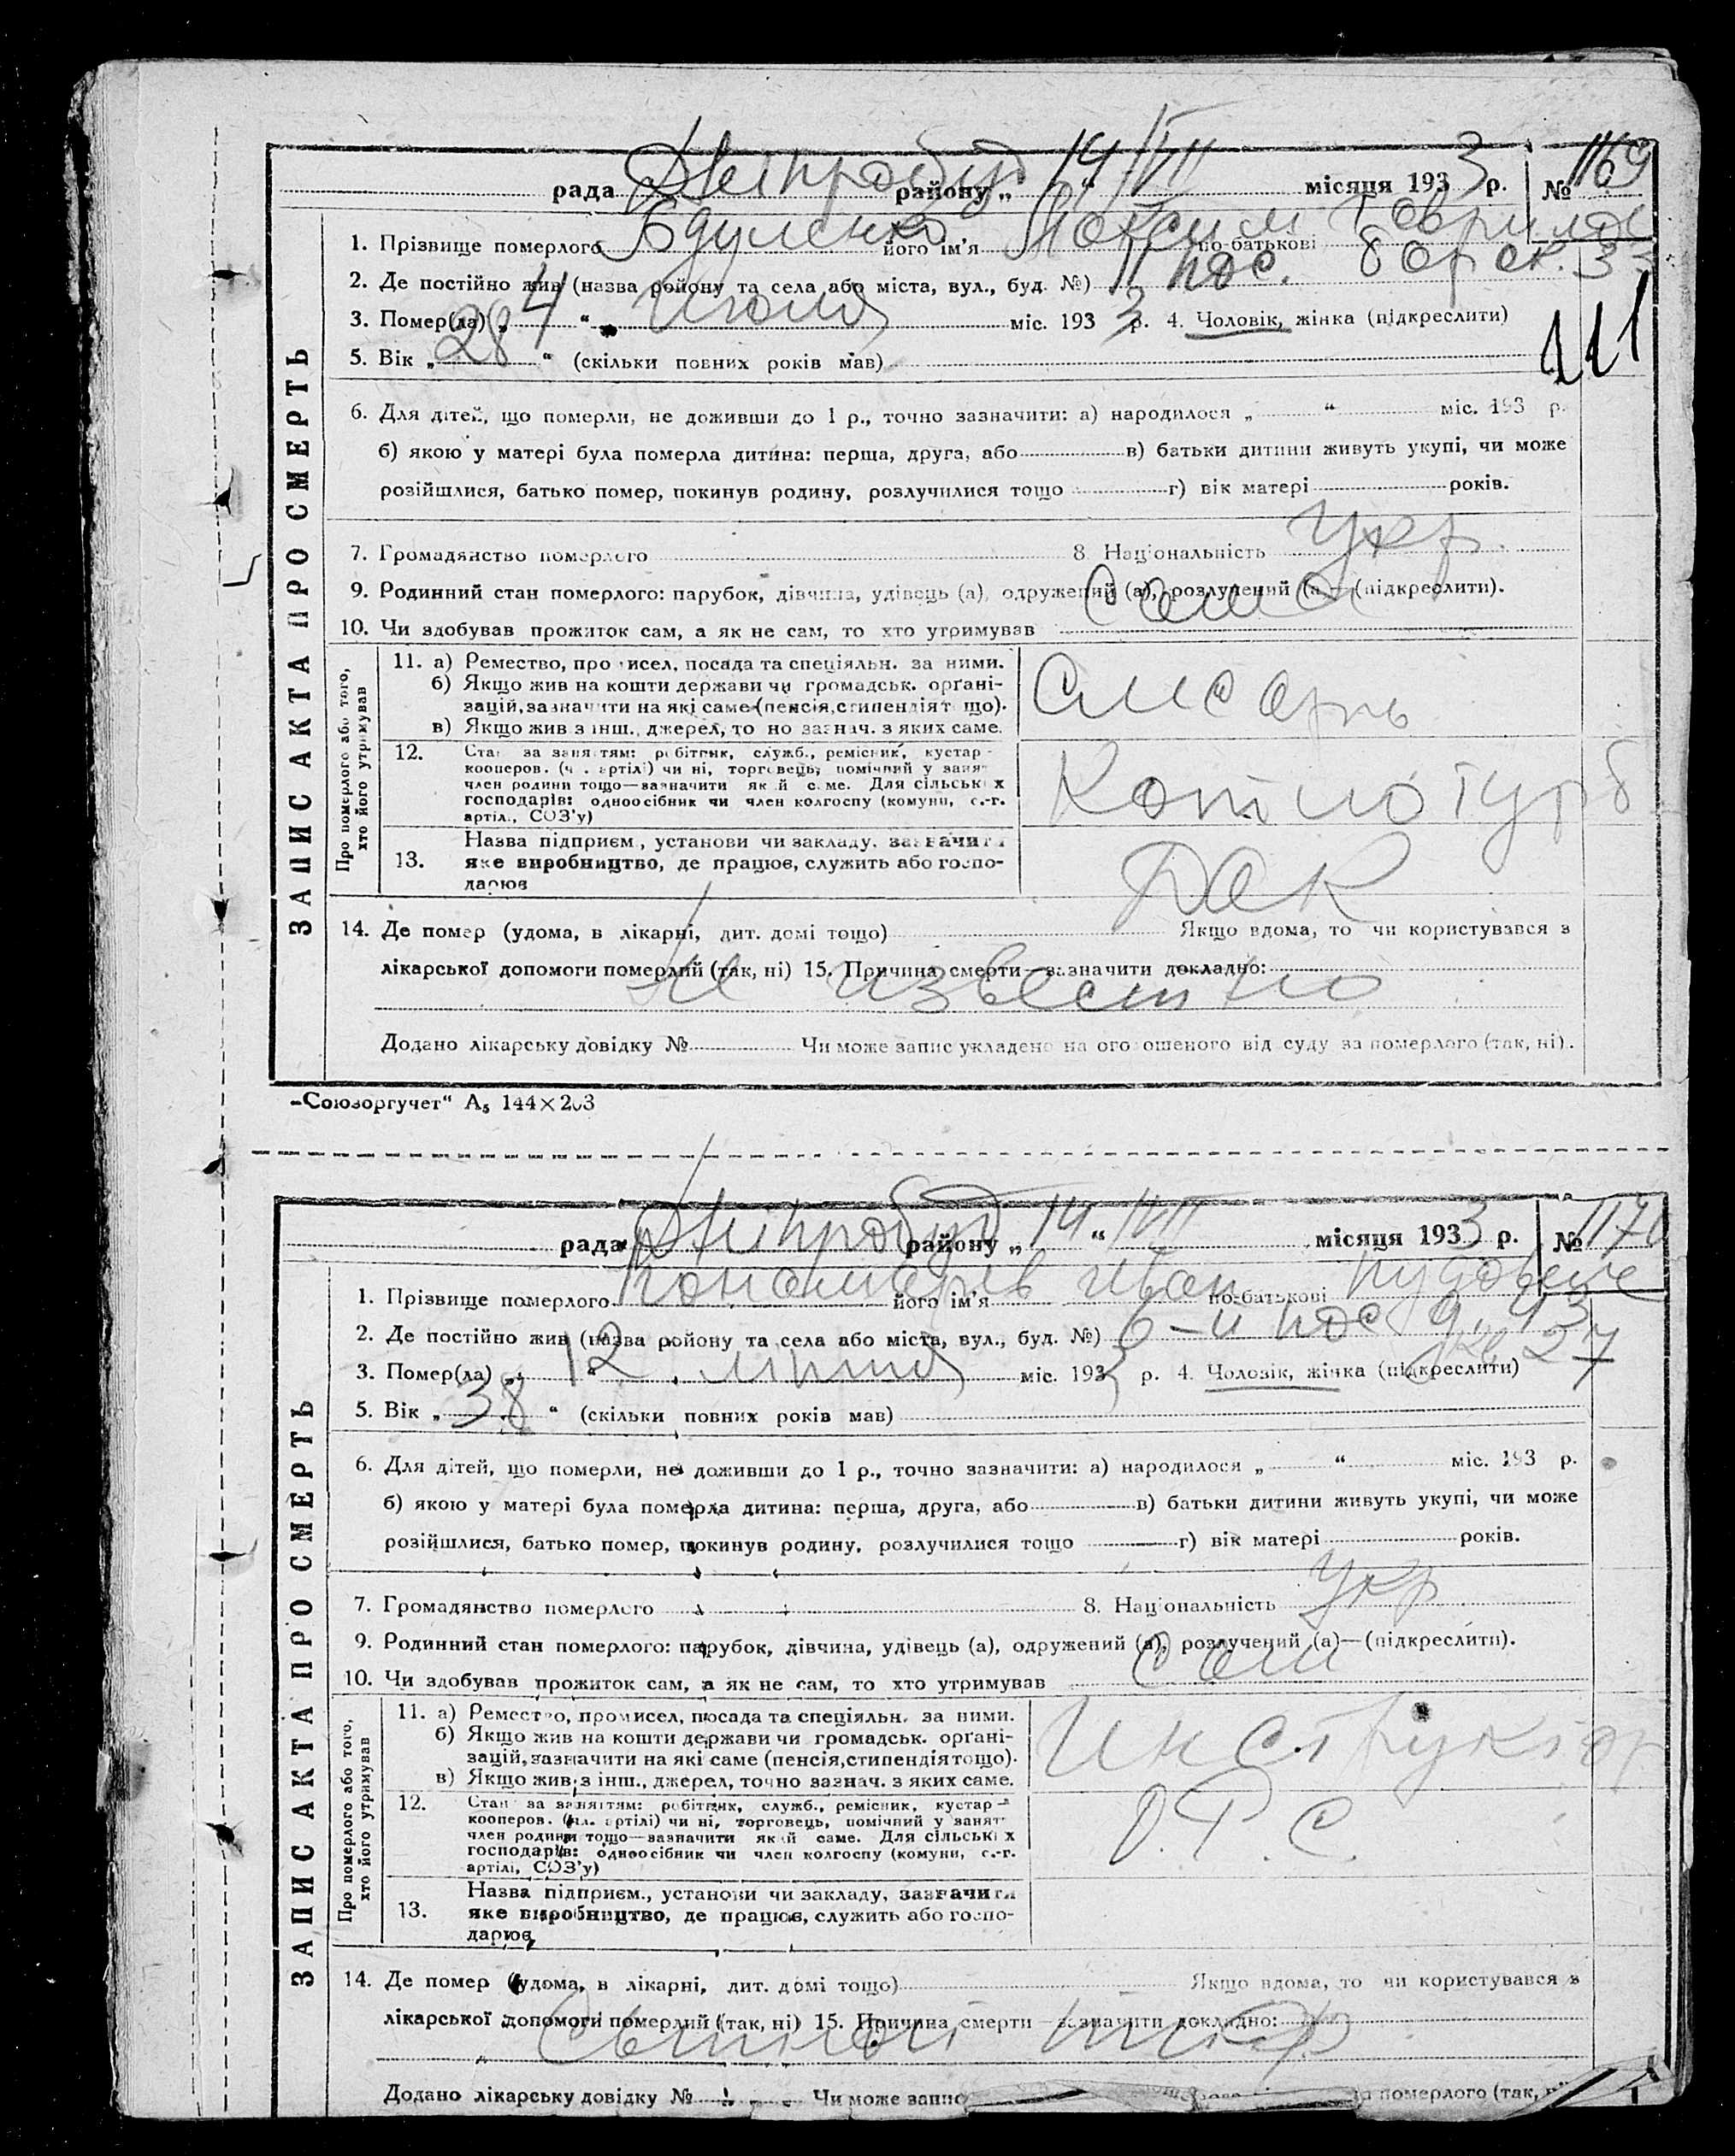 рада Дніпробуд району „ 14 “ VII місяця 1933 р. № 1169
1. Прізвище померлого його ім’я Максим по-батькові
2. Де постійно жив (назва району та села або міста, вул., буд. №) пос.
3. Помер(ла) „ 4 “ июля міс. 1933 р. 4. Чоловік, жінка (підкреслити)
111
5. Вік „ 28 “ (скільки повних років мав)
6. Для дітей, що померли, не доживши до 1 р., точно зазначити: а) народилося „ “ міс. 193 р.
б) якою у матері була померла дитина: перша, друга, або в) батьки дитини живуть укупі, чи може
розійшлися, батько помер, покинув родину, розлучилися тощо г) вік матері років.
7. Громадянство померлого 8. Національність Укр.
9. Родинний стан померлого: парубок, дівчина, удівець (а), одружений (а), розлучений (а)—(підкреслити).
10. Чи здобував прожиток сам, а як не сам, то хто утримував
ЗАПИС АКТА ПРО СМЕРТЬ
Про померлого або того, хто його утримував
11. а) Ремество, промисел, посада та спеціяльн. за ними.
б) Якщо жив на кошти держави чи громадськ. орґані-
зацій, зазначити на які саме (пенсія, стипендія тощо).
в) Якщо жив з інш., джерел, точно зазнач. з яких саме.
слесарь
12. Стан за заняттям: робітник, служб., ремісник, кустар-
кооперов. (чл. артілі) чи ні, торговець, помічний у занят.
член родини тощо—зазначити який саме. Для сільських
господарів: одноосібник чи член колгоспу (комуни, с.-г.
артілі, СОЗ’у)
Котлотурб
13. Назва підприєм., установи чи закладу, зазначити
яке виробництво, де працює, служить або госпо-
дарює
ДАК
14. Де помер (удома, в лікарні, дит. домі тощо) Якщо вдома, то чи користувався з
лікарської допомоги померлий (так, ні) 15. Причина смерти—зазначити докладно:
не известно
Додано лікарську довідку № Чи може запис укладено на оголошеного від суду за померлого (так, ні).
„Союзоргучет“ А₅ 144×203
рада Дніпробуд району „ 14 “ VII місяця 1933 р. № 1170
1. Прізвище померлого його ім’я Іван по-батькові
2. Де постійно жив (назва району та села або міста, вул., буд. №) 6-й пос
3. Помер(ла) „ 12 “ липня міс. 1933 р. 4. Чоловік, жінка (підкреслити)
5. Вік „ 38 “ (скільки повних років мав)
6. Для дітей, що померли, не доживши до 1 р., точно зазначити: а) народилося „ “ міс. 193 р.
б) якою у матері була померла дитина: перша, друга, або в) батьки дитини живуть укупі, чи може
розійшлися, батько помер, покинув родину, розлучилися тощо г) вік матері років.
7. Громадянство померлого 8. Національність Укр
9. Родинний стан померлого: парубок, дівчина, удівець (а), одружений (а), розлучений (а)—(підкреслити).
10. Чи здобував прожиток сам, а як не сам, то хто утримував сам
ЗАПИС АКТА ПРО СМЕРТЬ
Про померлого або того, хто його утримував
11. а) Ремество, промисел, посада та спеціяльн. за ними.
б) Якщо жив на кошти держави чи громадськ. орґані-
зацій, зазначити на які саме (пенсія, стипендія тощо).
в) Якщо жив з інш., джерел, точно зазнач. з яких саме.
Инструктор
12. Стан за заняттям: робітник, служб., ремісник, кустар-
кооперов. (чл. артілі) чи ні, торговець, помічний у занят.
член родини тощо—зазначити який саме. Для сільських
господарів: одноосібник чи член колгоспу (комуни, с.-г.
артілі, СОЗ’у)
13. Назва підприєм., установи чи закладу, зазначити
яке виробництво, де працює, служить або госпо-
дарює
14. Де помер (удома, в лікарні, дит. домі тощо) Якщо вдома, то чи користувався з
лікарської допомоги померлий (так, ні) 15. Причина смерти—зазначити докладно:
тиф
Додано лікарську довідку № Чи може запис померлого (так,